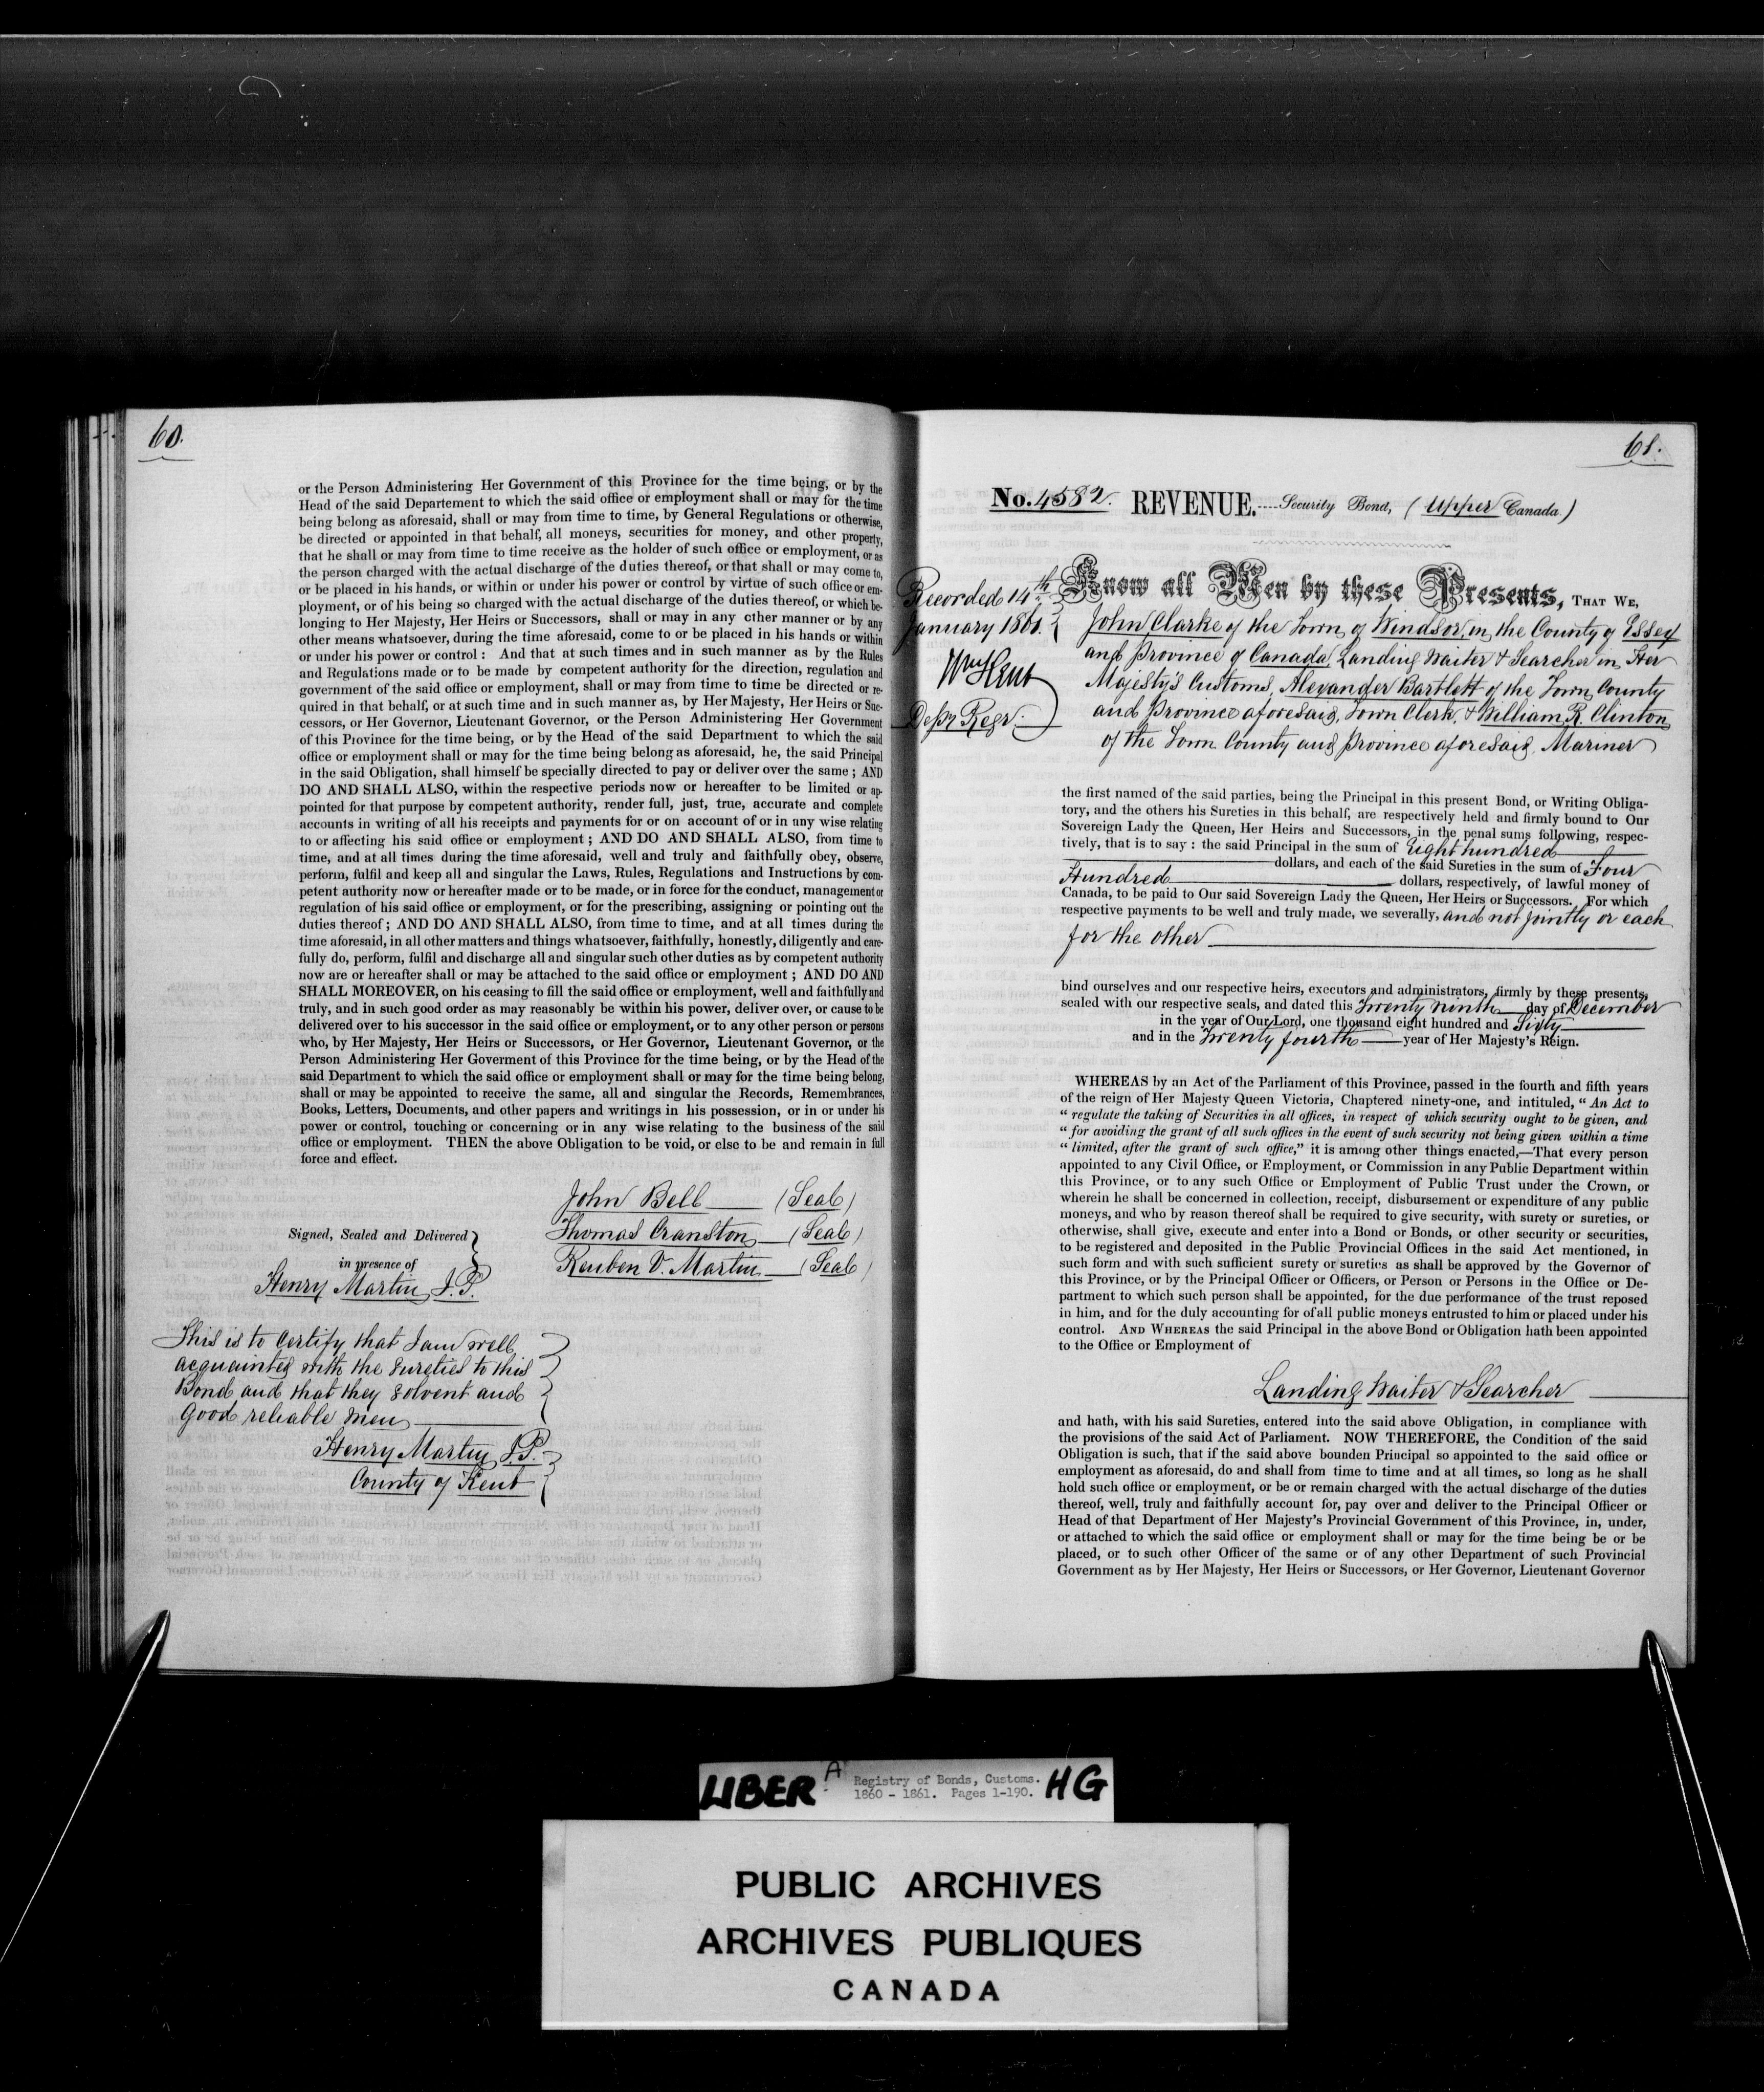 60.
or the Person Administering Her Government of this Province for the time being, or by the
Head of the said Departement to which the said office or employment shall or may for the time
being belong as aforesaid, shall or may from time to time, by General Regulations or otherwise,
be directed or appointed in that behalf, all moneys, securities for money, and other property,
that he shall or may from time to time receive as the holder of such office or employment, or as
the person charged with the actual discharge of the duties thereof, or that shall or may come to,
or be placed in his hands, or within or under his power or control by virtue of such office or em-
ployment, or of his being so charged with the actual discharge of the duties thereof, or which be-
longing to Her Majesty, Her Heirs or Successors, shall or may in any other manner or by any
other means whatsoever, during the time aforesaid, come to or be placed in his hands or within
or under his power or control : And that at such times and in such manner as by the Rules
and Regulations made or to be made by competent authority for the direction, regulation and
government of the said office or employment, shall or may from time to time be directed or re-
quired in that behalf, or at such time and in such manner as, by Her Majesty, Her Heirs or Suc-
cessors, or Her Governor, Lieutenant Governor, or the Person Administering Her Government
of this Province for the time being, or by the Head of the said Department to which the said
office or employment shall or may for the time being belong as aforesaid, he, the said Principal
in the said Obligation, shall himself be specially directed to pay or deliver over the same ; AND
DO AND SHALL ALSO, within the respective periods now or hereafter to be limited or ap-
pointed for that purpose by competent authority, render full, just, true, accurate and complete
accounts in writing of all his receipts and payments for or on account of or in any wise relating
to or affecting his said office or employment ; AND DO AND SHALL ALSO, from time to
time, and at all times during the time aforesaid, well and truly and faithfully obey, observe,
perform, fulfil and keep all and singular the Laws, Rules, Regulations and Instructions by com-
petent authority now or hereafter made or to be made, or in force for the conduct, management or
regulation of his said office or employment, or for the prescribing, assigning or pointing out the
duties thereof ; AND DO AND SHALL ALSO, from time to time, and at all times during the
time aforesaid, in all other matters and things whatsoever, faithfully, honestly, diligently and care-
fully do, perform, fulfil and discharge all and singular such other duties as by competent authority
now are or hereafter shall or may be attached to the said office or employment ; AND DO AND
SHALL MOREOVER, on his ceasing to fill the said office or employment, well and faithfully and
truly, and in such good order as may reasonably be within his power, deliver over, or cause to be
delivered over to his successor in the said office or employment, or to any other person or persons
who, by Her Majesty, Her Heirs or Successors, or Her Governor, Lieutenant Governor, or the
Person Administering Her Goverment of this Province for the time being, or by the Head of the
said Department to which the said office or employment shall or may for the time being belong,
shall or may be appointed to receive the same, all and singular the Records, Remembrances,
Books, Letters, Documents, and other papers and writings in his possession, or in or under his
power or control, touching or concerning or in any wise relating to the business of the said
office or employment. THEN the above Obligation to be void, or else to be and remain in full
force and effect.
John Bell (Seal)
Signed, Sealed and Delivered Thomas Cranston (Seal)
in presence of Reuben V. Martin (Seal)
Henry Martin J.P.
This is to Certify that I am well
acquainted with the Sureties to this
Bond and that they solvent and
good reliable men
Henry Martin J.P.
County of Kent
61.
No. 4582. REVENUE.----Security Bond, (Upper Canada.)
Recorded 14th
January 1861.
Wm Kent
Depy Regr.
Know all Men by these Presents, THAT WE,
John Clarke of the Town of Windsor, in the County of Essex
and Province of Canada Landing Waiter & Searcher in Her
Majesty's Customs, Alexander Bartlett of the Town, County
and Province aforesaid, Town Clerk, & William R. Clinton
of the Town County and Province aforesaid, Mariner
the first named of the said parties, being the Principal in this present Bond, or Writing Obliga-
tory, and the others his Sureties in this behalf, are respectively held and firmly bound to Our
Sovereign Lady the Queen, Her Heirs and Successors, in the penal sums following, respec-
tively, that is to say : the said Principal in the sum of Eight hundred
dollars, and each of the said Sureties in the sum of Four
Hundred dollars, respectively, of lawful money of
Canada, to be paid to Our said Sovereign Lady the Queen, Her Heirs or Successors. For which
respective payments to be well and truly made, we severally, and not jointly or each
for the other
bind ourselves and our respective heirs, executors and administrators, firmly by these presents,
sealed with our respective seals, and dated this Twenty ninth day of December
in the year of Our Lord, one thousand eight hundred and Sixty
and in the Twenty fourth year of Her Majesty's Reign.
WHEREAS by an Act of the Parliament of this Province, passed in the fourth and fifth years
of the reign of Her Majesty Queen Victoria, Chaptered ninety-one, and intituled, “ An Act to
“ regulate the taking of Securities in all offices, in respect of which security ought to be given, and
“ for avoiding the grant of all such offices in the event of such security not being given within a time
“ limited, after the grant of such office,” it is among other things enacted,—That every person
appointed to any Civil Office, or Employment, or Commission in any Public Department within
this Province, or to any such Office or Employment of Public Trust under the Crown, or
wherein he shall be concerned in collection, receipt, disbursement or expenditure of any public
moneys, and who by reason thereof shall be required to give security, with surety or sureties, or
otherwise, shall give, execute and enter into a Bond or Bonds, or other security or securities,
to be registered and deposited in the Public Provincial Offices in the said Act mentioned, in
such form and with such sufficient surety or sureties as shall be approved by the Governor of
this Province, or by the Principal Officer or Officers, or Person or Persons in the Office or De-
partment to which such person shall be appointed, for the due performance of the trust reposed
in him, and for the duly accounting for of all public moneys entrusted to him or placed under his
control. AND WHEREAS the said Principal in the above Bond or Obligation hath been appointed
to the Office or Employment of
Landing Waiter & Searcher
and hath, with his said Sureties, entered into the said above Obligation, in compliance with
the provisions of the said Act of Parliament. NOW THEREFORE, the Condition of the said
Obligation is such, that if the said above bounden Principal so appointed to the said office or
employment as aforesaid, do and shall from time to time and at all times, so long as he shall
hold such office or employment, or be or remain charged with the actual discharge of the duties
thereof, well, truly and faithfully account for, pay over and deliver to the Principal Officer or
Head of that Department of Her Majesty's Provincial Government of this Province, in, under,
or attached to which the said office or employment shall or may for the time being be or be
placed, or to such other Officer of the same or of any other Department of such Provincial
Government as by Her Majesty, Her Heirs or Successors, or Her Governor, Lieutenant Governor
LIBER A Registry of Bonds, Customs. HG
1860 - 1861. Pages 1-190.
PUBLIC ARCHIVES
ARCHIVES PUBLIQUES
CANADA